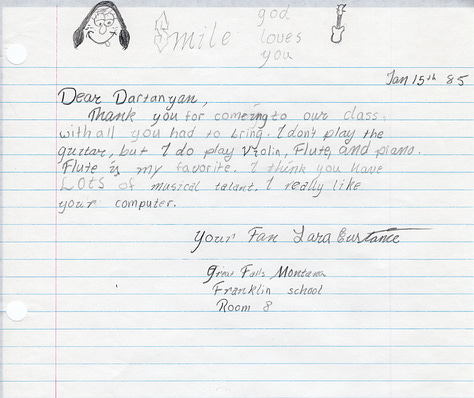 Smile
god
loves
you
Jan 15th 85
Dear Dartanyan,
Thank you for comeing to our class,
with all you had to bring. I don't play the
guitar, but I do play Violin, Flute, and piano.
Flute is my favorite. I think you have
LOTS of musical talant. I really like
your computer.
Your Fan Lara Eustance
Great Falls Montana
Franklin school
Room 8